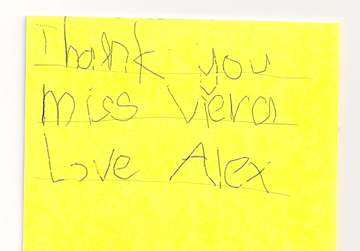 Thank you
Miss Viera
Love Alex